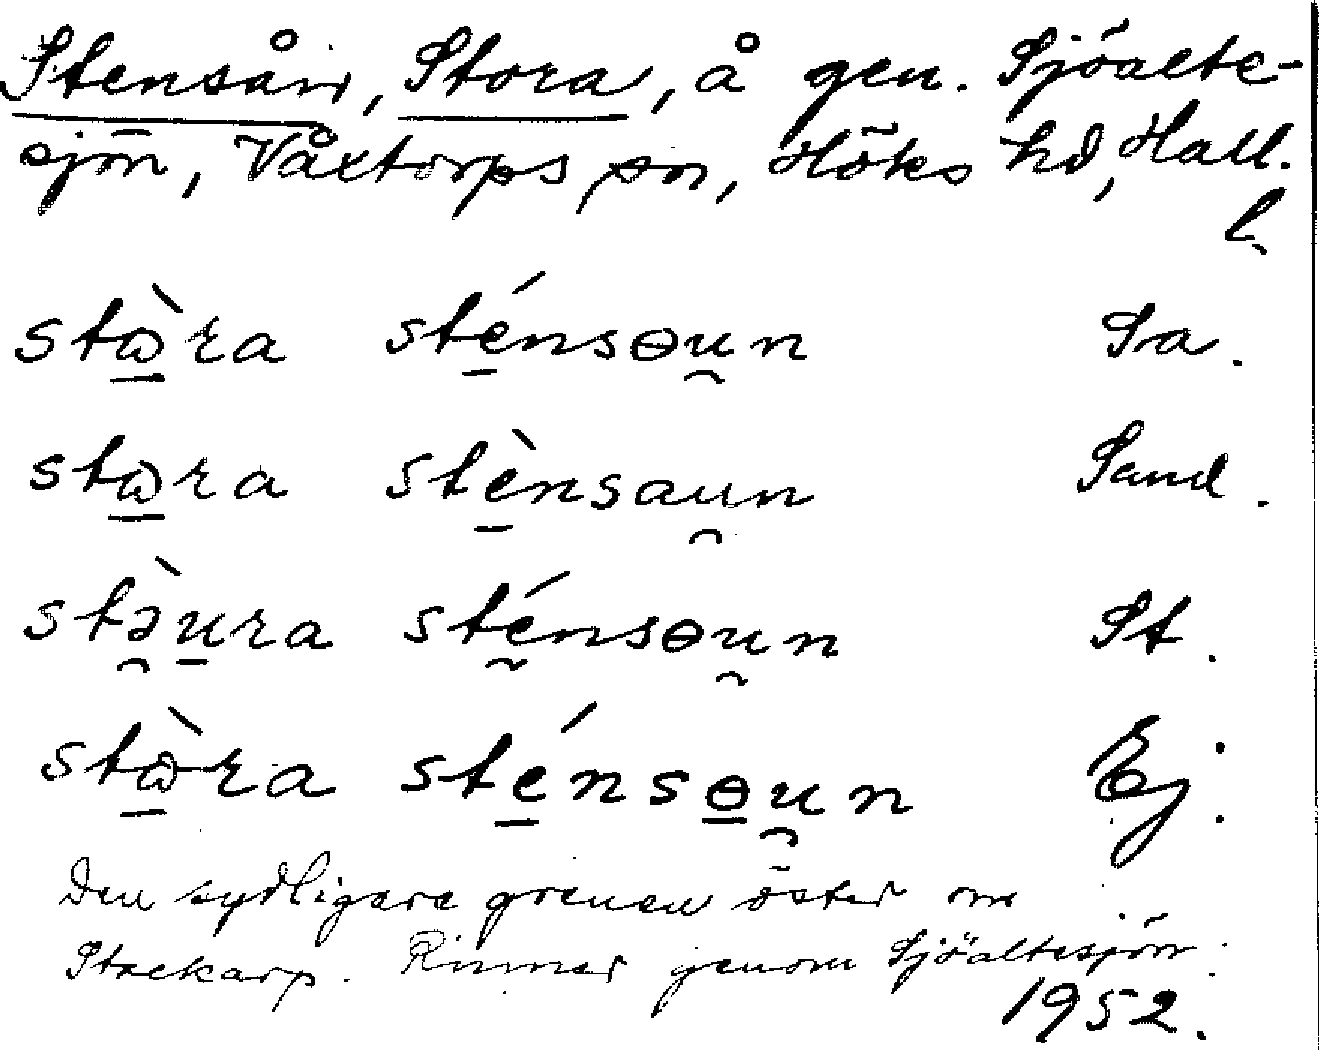 Stensån, Stora, å gen. Sjöalte-
sjön, Våxtorps sn, Höks hd, Hall.
l.
stꞷ̠̀ra sté̠nsɵu̯n Sa.
stꞷ̠ra stè̠nsau̯n Sand.
stə̯̀u̠ra sté̯nsɵu̯n St.
stꞷ̠̀ra sté̠nsɵ̠u̯n Ej.
Den sydligare grenen öster om
Stackarp. Rinner genom Sjöaltesjön.
1952.